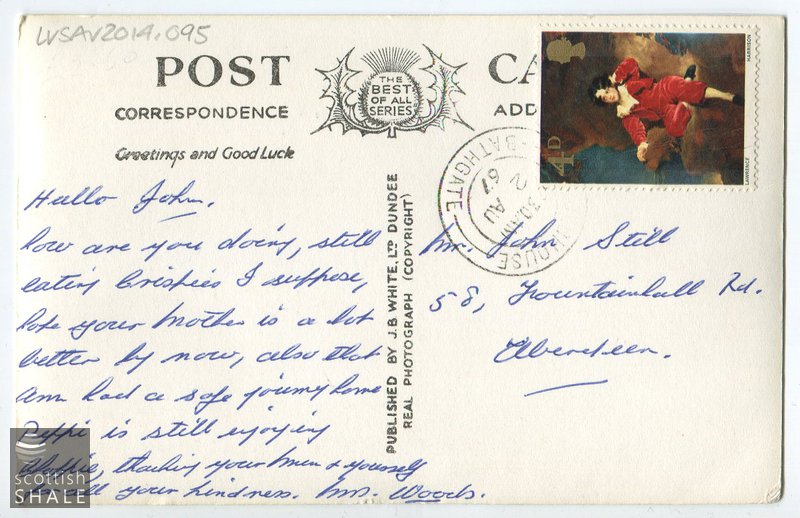 LVSAV2014.095
POST CA
THE BEST OF ALL SERIES
CORRESPONDENCE ADD
Greetings and Good Luck
HARRISON
LAWRENCE
4D
BATHGATE
30 AM
2 AU
67
HOUSE
PUBLISHED BY J.B. WHITE. LTD DUNDEE
REAL PHOTOGRAPH (COPYRIGHT)
Hullo John,
how are you doing, still
eating Crispies I suppose,
hope your mother is a lot
better by now, also that
Ann had a safe journey home
is still enjoying
your Mum & yourself
your kindness. Mrs. Woods.
Mr. John Still
58, Fountainhall Rd.
Aberdeen.
scottish
SHALE